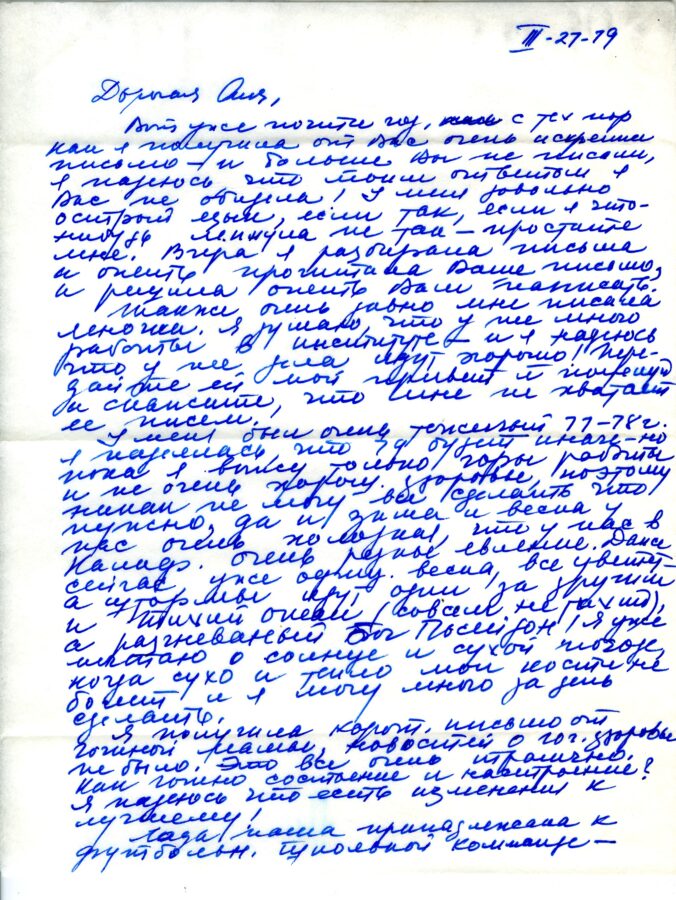 III-27-79
Дорогая Аня,
Вот уже почти год, с тех пор
как я получила от Вас очень искренни
письмо – и больше Вы не писали,
я надеюсь что моим ответом я
Вас не обидела! У меня довольно
острый язык, если так, если я что-
нибудь ляпнула не так – простите
мне. Вчера я разбирала письма
и опять прочитала Ваше письмо,
и решила опять Вам написать.
Также очень давно мне писала
Леночка. Я думаю, что у нее много
работы в институте – и я надеюсь
что у нее дела идут хорошо! Пере-
дайте ей мой привет и поцелуй
и скажите, что мне не хватает
ее писем.
У меня был очень тяжелый 77-78 г.
я надеялась что 79 будет иначе – но
пока я вижу только горы работы
и не очень хорош. здоровье, поэтому
никак не могу все сделать что
нужно, да и зима и весна у
нас очень холодная, что у нас в
Калиф. очень редкое явление. Даже
сейчас уже офиц. весна, все цветет,
а штормы идут один за другим
и Тихий океан (совсем не тихий),
а разгневаный Бог Посейдон! Я уже
мечтаю о солнце и сухой погоде,
когда сухо и тепло мои кости не
болят и я могу много за день
сделать.
Я получила корот. письмо от
гогиной мамы, новостей о гог. здоровье
не было. Это все очень трагично.
Как гогино состояние и настроение?
Я надеюсь что есть изменения к
лучшему!
наша принадлежала к
футбольн. школьной команде –